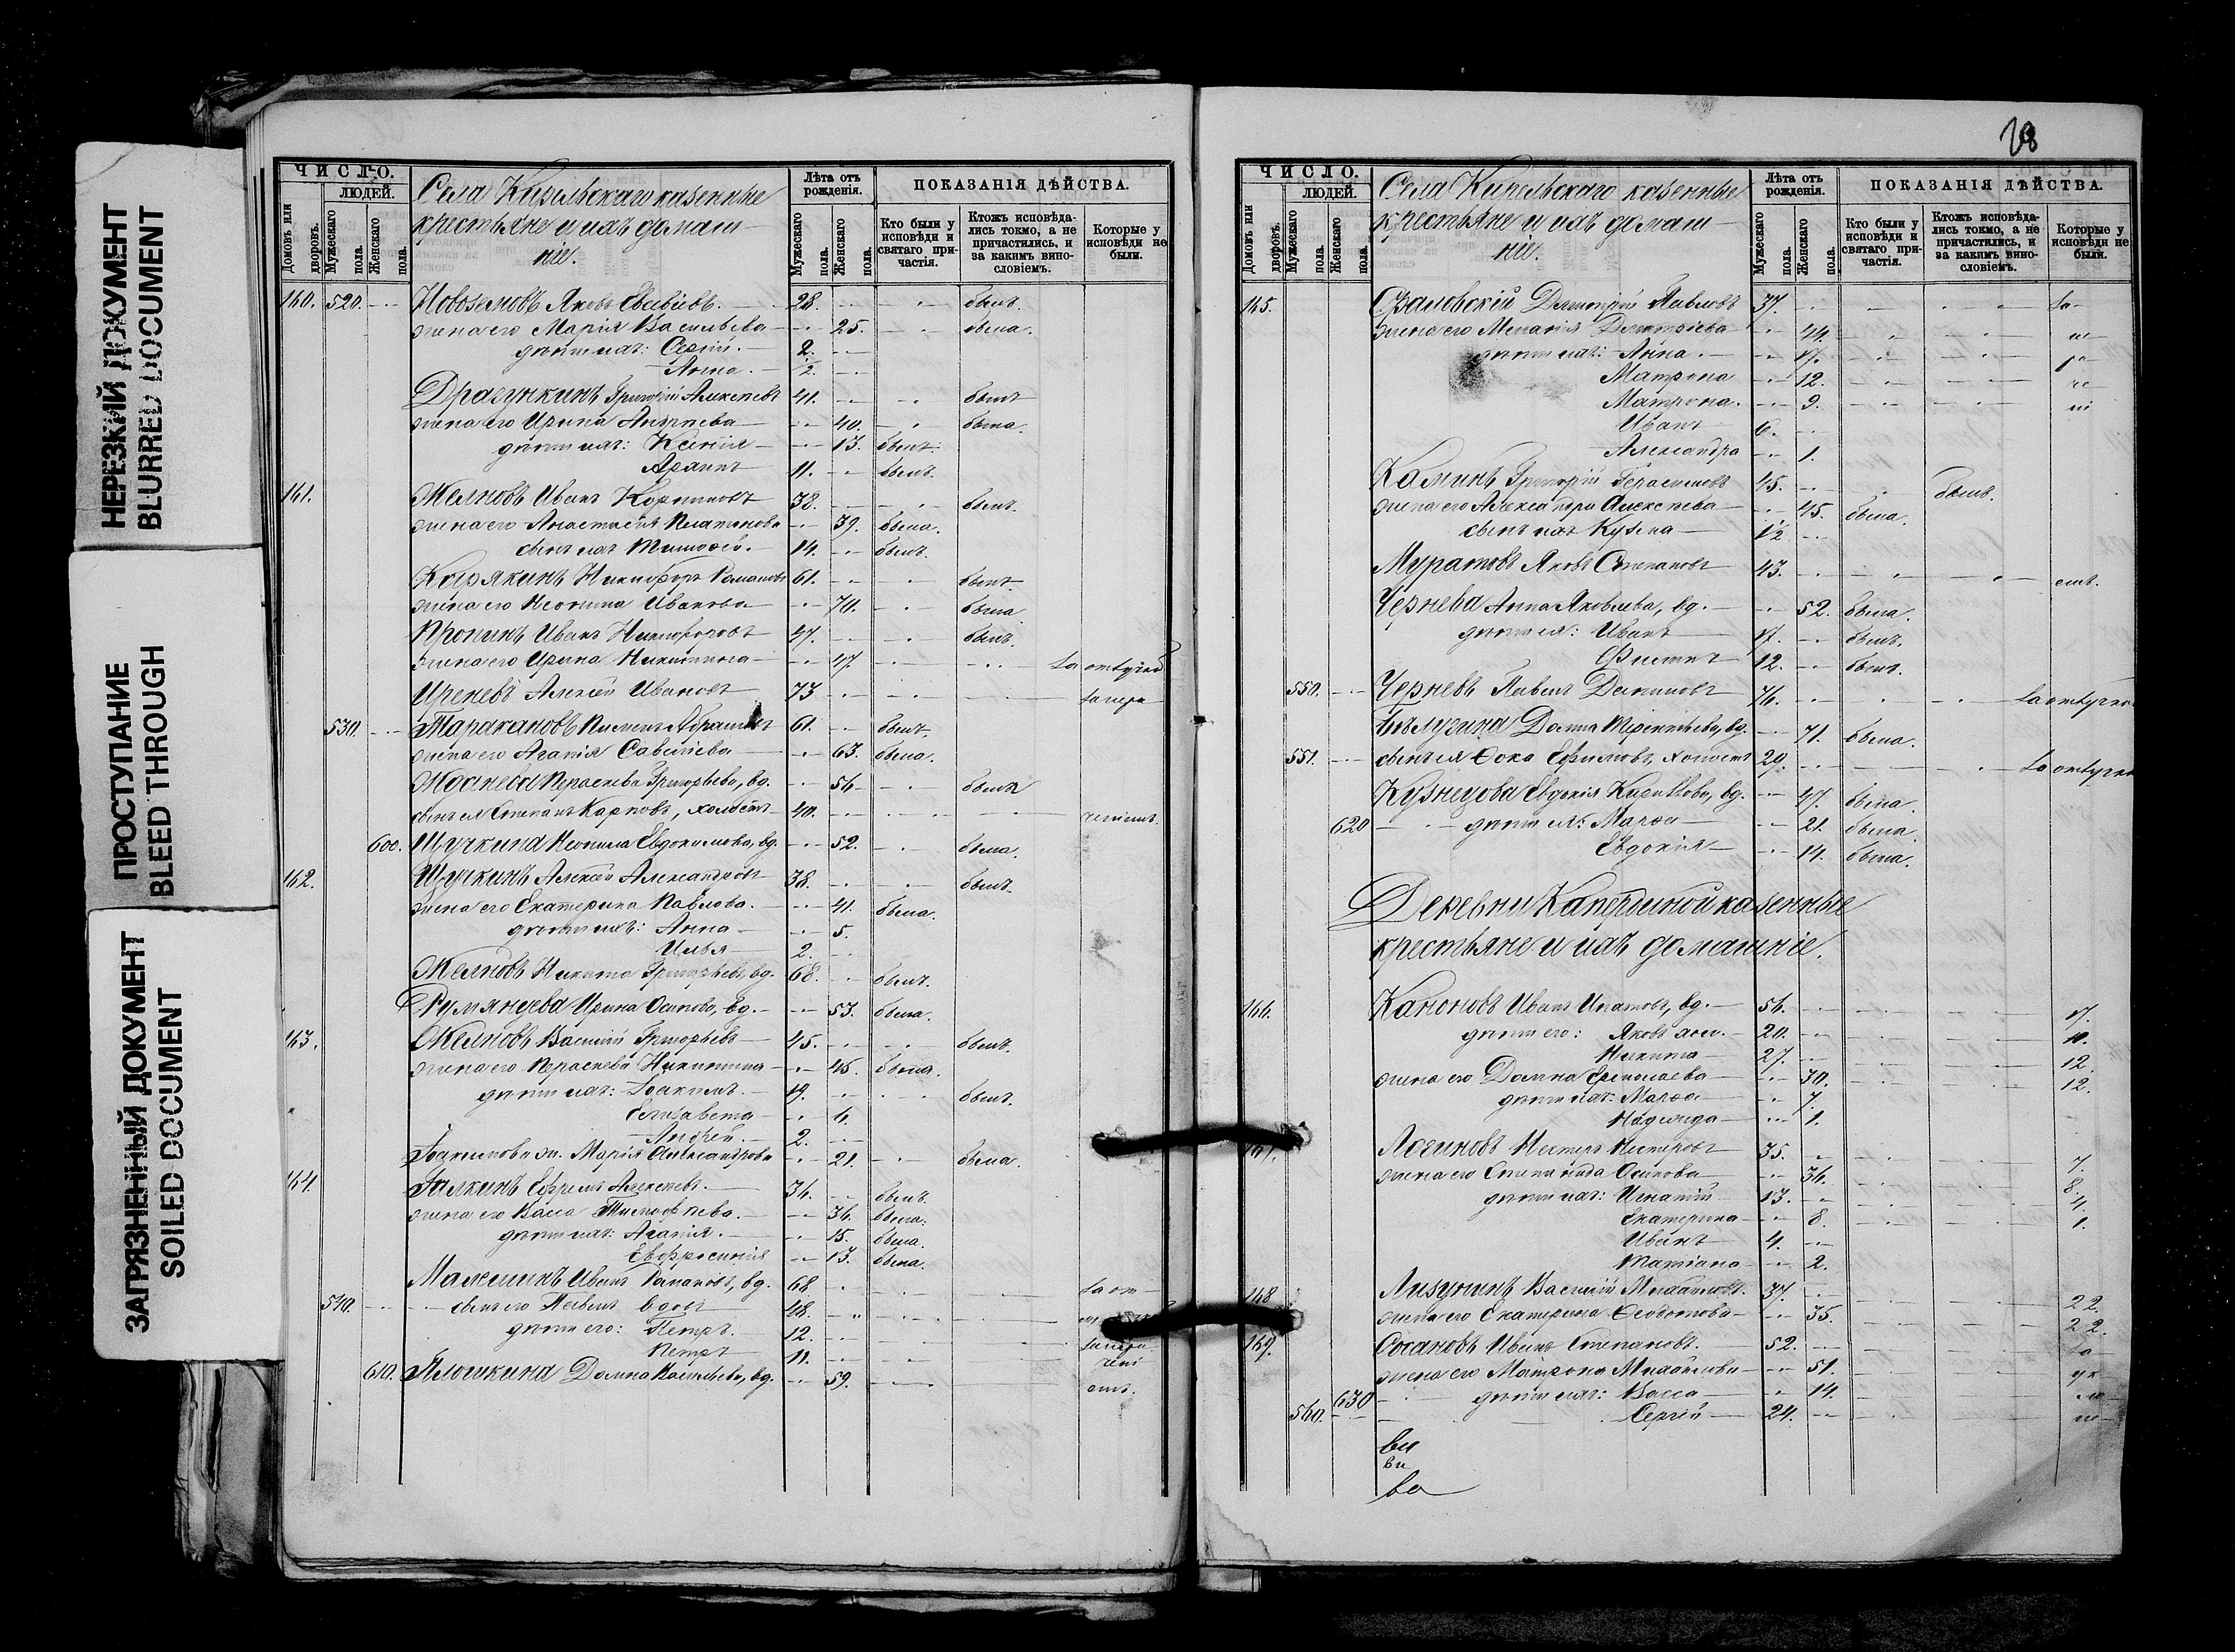 НЕРЕЗКИЙ ДОКУМЕНТ
BLURRED DOCUMENT
ПРОСТУПАНИЕ
BLEED THROUGH
ЗАГРЯЗНЕННЫЙ ДОКУМЕНТ
SOILED DOCUMENT
ЧИСЛО.
ЛЮДЕЙ.
Домовъ или дворовъ.
Мужескаго пола.
Женскаго пола.
Села казенные
крестьяне и ихъ домаш-
ніе.
Лѣта отъ рожденія.
Мужескаго пола.
Женскаго пола.
ПОКАЗАНІЯ ДѢЙСТВА.
Кто были у исповѣди и святаго причастія.
Ктожъ исповѣдались токмо, а не причастились, и за какимъ винословіемъ.
Которые у исповѣди не были.
160. 520. Яковъ 28. былъ.
жена его Марія Васильева 25. была.
дѣти ихъ: Сергій. 2.
Анна. 1/2.
Драгункинъ Григорій Алексѣевъ 41. былъ
жена его Ирина Андреева 40. была.
дѣти ихъ: Ксенія 13.
Архипъ 11. былъ.
161. Иванъ 38. былъ.
жена его Анастасія Платонова 39. была.
сынъ ихъ Тимоѳей. 14. былъ.
Карякинъ Никифоръ Романовъ 61. былъ
жена его Неонила Иванова 70. была
Пронинъ Иванъ Никифоровъ 47. былъ.
жена его Ирина Никитина 47. за отлучкой
Алексѣй Ивановъ 73
530. Таракановъ Пименъ Абрамовъ 61. былъ
жена его Агапія Савельева 63. была.
Параскева Григорьева, вд. 56
сынъ ея Степанъ Карповъ, холостъ 40.
600. Щучкина Неонила Евдокимова, вд. 52. была.
162. Щучкинъ Алексѣй Александровъ 38. былъ
жена его Екатерина Павлова. 41. была.
дѣти ихъ: Анна 5.
Илья 2.
Никита Григорьевъ, вд. 68. былъ.
Румянцева Ирина Осипова, вд. 53. была.
163. Василій Григорьевъ 45. былъ.
жена его Параскева Никитина 45. была.
дѣти ихъ: Іоакимъ. 19. былъ.
Елизавета
Андрей. 2.
Іоакимова ж. Марія Александрова 21. была.
164. Галкинъ Ефремъ Алексѣевъ. 36. былъ.
жена его Васса Тимоѳеева. 36. была.
дѣти ихъ: Агапія. 15. была.
Евфросинія 13. была.
Малешинъ Иванъ Романовъ, вд. 68 за от-
540. сынъ его Павелъ вдовъ 48.
дѣти его: Петръ. 12.
Петръ 11.
610. Домна Васильева, вд. 59.
28
ЧИСЛО.
ЛЮДЕЙ.
Домовъ или дворовъ.
Мужескаго пола.
Женскаго пола.
Села казенные
крестьяне и ихъ домаш-
ніе.
Лѣта отъ рожденія.
Мужескаго пола.
Женскаго пола.
ПОКАЗАНІЯ ДѢЙСТВА.
Кто были у исповѣди и святаго причастія.
Ктожъ исповѣдались токмо, а не причастились, и за какимъ винословіемъ.
Которые у исповѣди не были.
165. Димитрій Павловъ 37. за-
жена его Меланія Димитріева 44.
дѣти ихъ: Анна. 17.
Матрона 12.
Матрона. 9.
Иванъ 6.
Александра 1.
Каминъ Григорій Герасимовъ 45. былъ.
жена его Александра Алексѣева 45. была.
сынъ ихъ Кузьма 12
Муратовъ Яковъ Степановъ 43.
Чернева Анна Яковлева, вд. 52. была.
дѣти ея: Иванъ 17. былъ.
12. былъ.
550. Черневъ Павелъ Даниловъ 76. за отлучкой
Бѣлугина Домна Терентьева, вд. 71. была.
551. сынъ ея Ѳока Ефимовъ, холостъ 29. за отлучкой
Кузнецова Евдокія Кириллова, вд. 47. была.
620 дѣти ея: Марѳа 21. была.
Евдокія 14. была.
Деревни казенные
крестьяне и ихъ домашніе.
166. Каноновъ Иванъ Ипатовъ, вд. 56. 17.
дѣти его: Яковъ хол. 20. 10.
Никита 27. 12.
жена его Домна Ермолаева 30. 12.
дѣти ихъ: Марѳа 7.
Надежда 1.
167. Логиновъ Несторъ Несторовъ 35. 7.
жена его Степанида Осипова 36. 8.
дѣти ихъ: Игнатій 13. 4.
Екатерина 8. 1.
Иванъ 4.
Татіана 2.
168 Лизунинъ Василій Михайловъ. 37. 22.
жена его Екатерина Ѳеодотова 35. 22.
169. Иванъ Степановъ. 52. за
жена его Матрона Михайлова 51.
630 дѣти ихъ: Васса 14.
560. Сергій 24.
ви
ви
ва